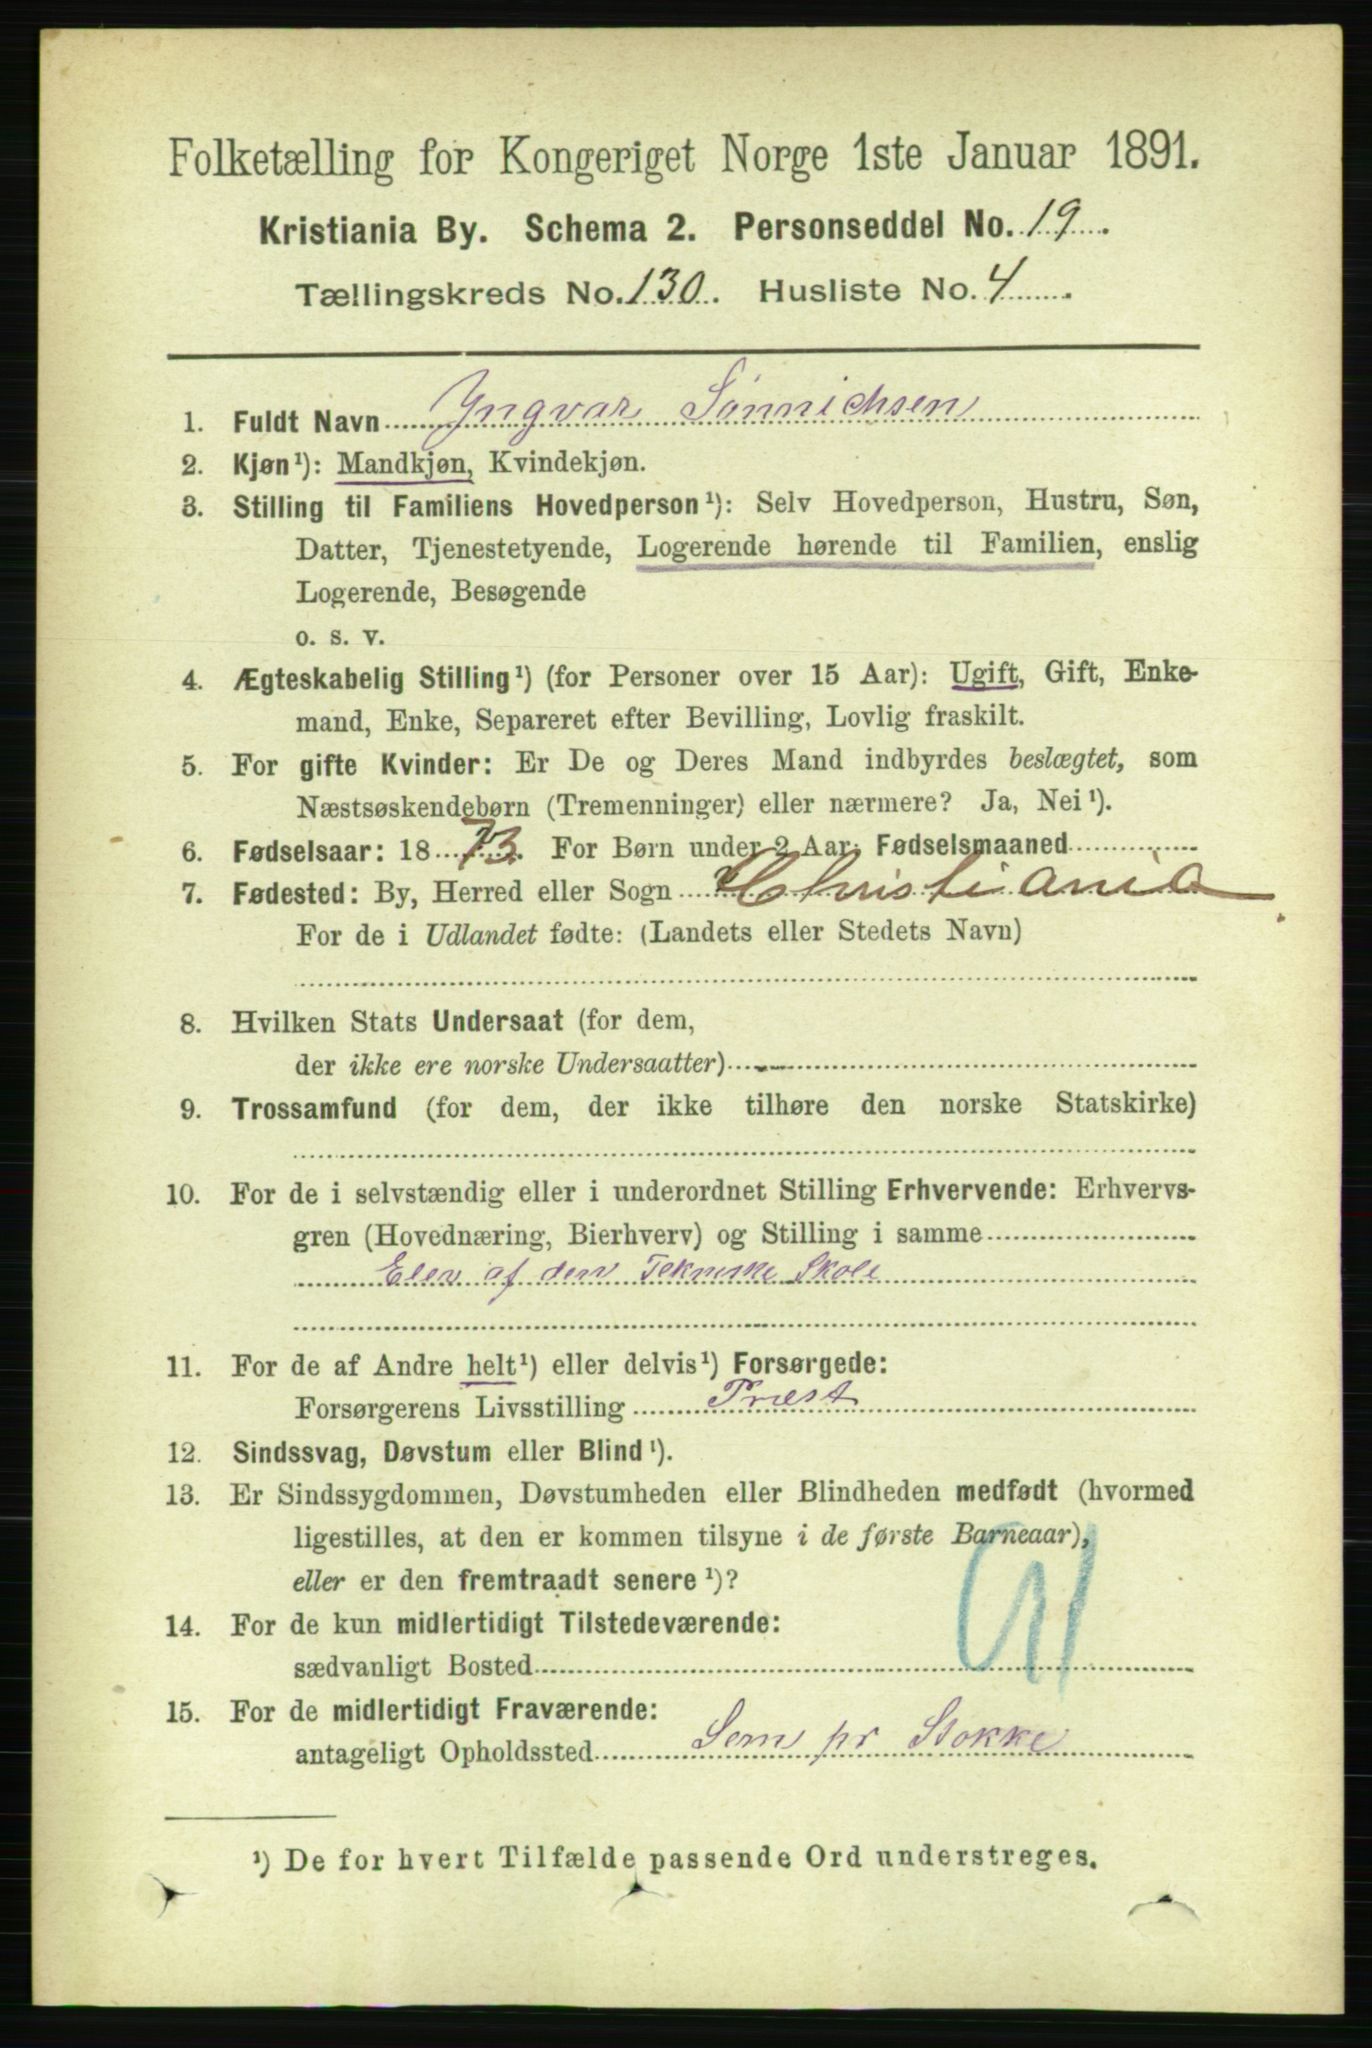 Folketælling for Kongeriget Norge 1ste Januar 1891.
Kristiania By. Schema 2. Personseddel No. 19.
Tællingskreds No. 130. Husliste No. 4.
1. Fuldt Navn Yngvar Sönnichsen
2. Kjøn¹): Mandkjøn, Kvindekjøn.
3. Stilling til Familiens Hovedperson¹): Selv Hovedperson, Hustru, Søn,
Datter, Tjenestetyende, Logerende hørende til Familien, enslig
Logerende, Besøgende
o. s. v.
4. Ægteskabelig Stilling¹) (for Personer over 15 Aar): Ugift, Gift, Enke-
mand, Enke, Separeret efter Bevilling, Lovlig fraskilt.
5. For gifte Kvinder: Er De og Deres Mand indbyrdes beslægtet, som
Næstsøskendebørn (Tremenninger) eller nærmere? Ja, Nei¹).
6. Fødselsaar: 1873. For Børn under 2 Aar: Fødselsmaaned
7. Fødested: By, Herred eller Sogn Christiania
For de i Udlandet fødte: (Landets eller Stedets Navn)
8. Hvilken Stats Undersaat (for dem,
der ikke ere norske Undersaatter)
9. Trossamfund (for dem, der ikke tilhøre den norske Statskirke)
10. For de i selvstændig eller i underordnet Stilling Erhvervende: Erhvervs-
gren (Hovednæring, Bierhverv) og Stilling i samme
Elev af den Tekniske Skole
11. For de af Andre helt¹) eller delvis¹) Forsørgede:
Forsørgerens Livsstilling Præst
12. Sindssvag, Døvstum eller Blind¹).
13. Er Sindssygdommen, Døvstumheden eller Blindheden medfødt (hvormed
ligestilles, at den er kommen tilsyne i de første Barneaar),
eller er den fremtraadt senere¹)?
14. For de kun midlertidigt Tilstedeværende:
sædvanligt Bosted
15. For de midlertidigt Fraværende:
antageligt Opholdssted Sem pr Stokke
¹) De for hvert Tilfælde passende Ord understreges.